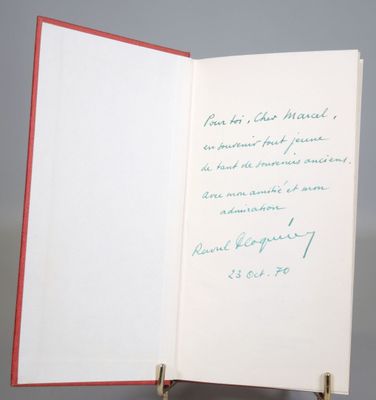 Pour toi, Cher Marcel,
en souvenir tout jeune
de tant de souvenirs anciens.
Avec mon amitié et mon
admiration
Raoul Ploquin
23 Oct. 70